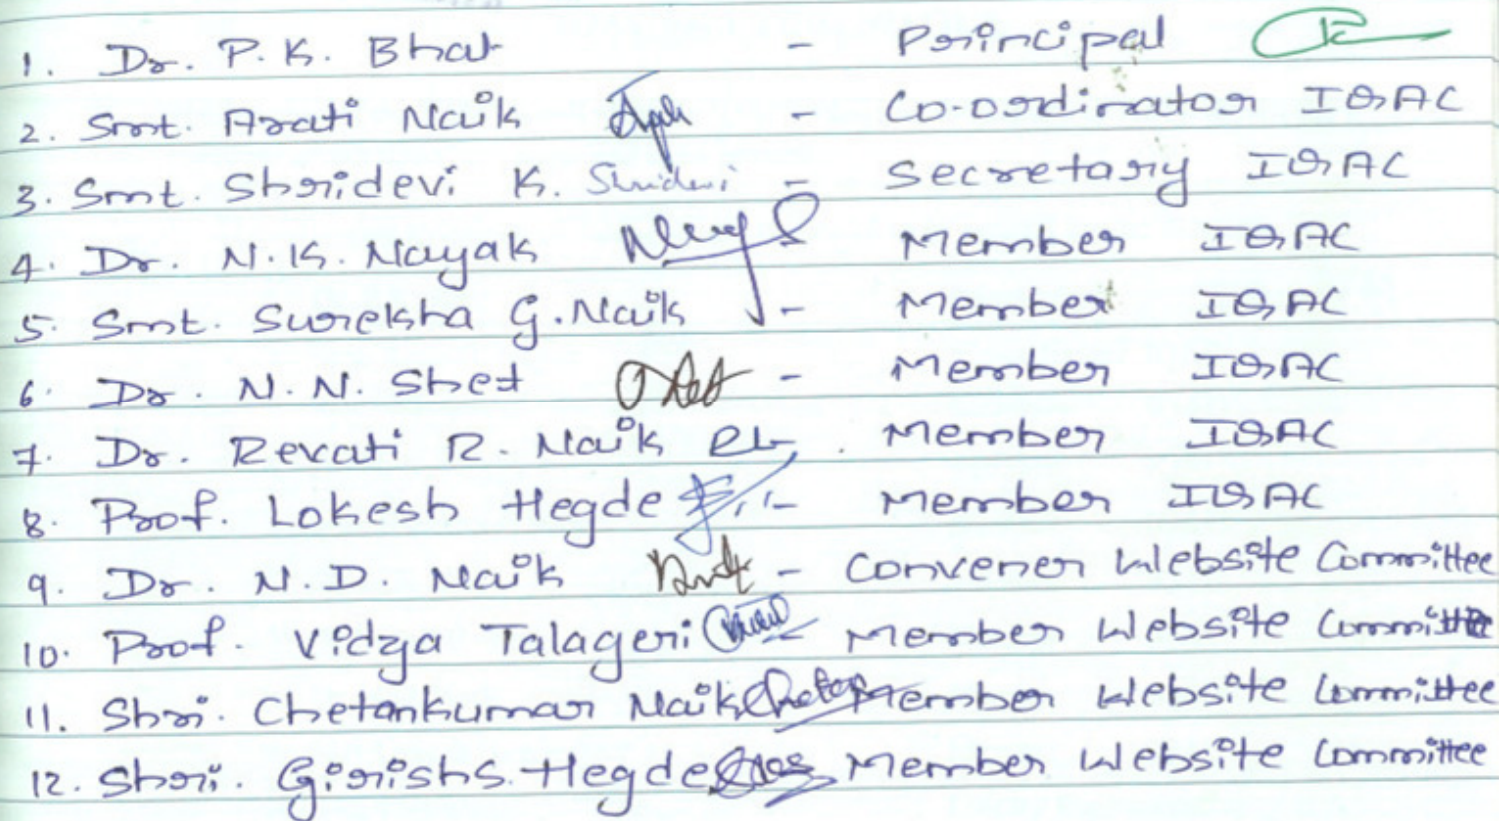 1. Dr. P. K. Bhat - Principal
2. Smt. Arati Naik - Co-ordinator IQAC
3. Smt. Shridevi K. Shridevi - Secretary IQAC
4. Dr. N. K. Nayak Member IQAC
5. Smt. Surekha G. Naik - Member IQAC
6. Dr. N. N. Shet - Member IQAC
7. Dr. Revati R. Naik . Member IQAC
8. Prof. Lokesh Hegde - Member IQAC
9. Dr. N. D. Naik - Convener Website Committee
10. Prof. Vidya Talageri - Member Website Committee
11. Shri. Chetankumar Naik Member Website Committee
12. Shri. Girish S. Hegde Member Website Committee